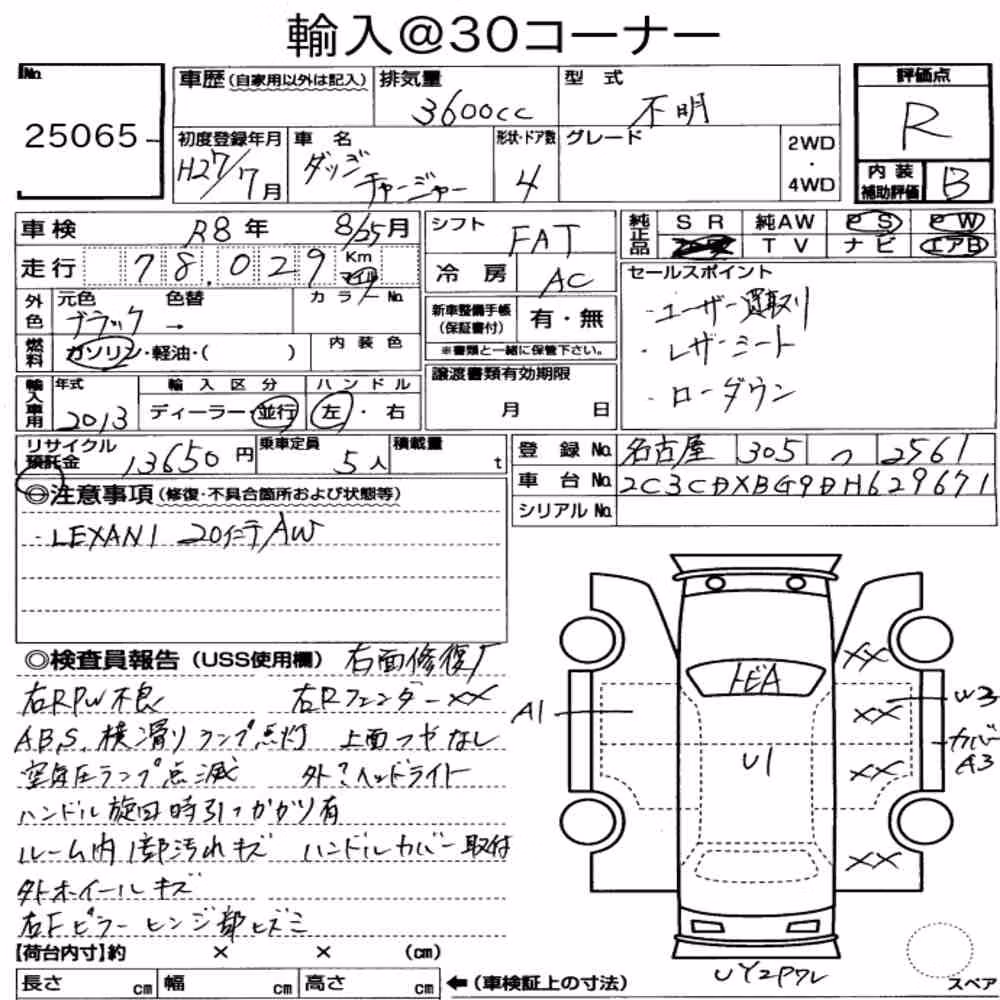 輸入@30コーナー
No. 25065
車歴(自家用以外は記入) 排気量 3600cc 型式 不明 評価点 R
初度登録年月 H27/7月 車名 ダッジ チャージャー 形状・ドア数 4 グレード 2WD・4WD 内装補助評価 B
車検 R8年 8/25月 シフト FAT 純正品 SR 純AW PS PW
TV ナビ エアB
走行 78,029 Km 冷房 AC
外色 元色 ブラック 色替 → カラーNo. 新車整備手帳(保証書付) 有・無
※書類と一緒に保管下さい。
燃料 ガソリン・軽油・( ) 内装色
セールスポイント
・ユーザー買取り
・レザーシート
・ローダウン
輸入車用 年式 2013 輸入区分 ディーラー・並行 ハンドル 左・右 譲渡書類有効期限 月 日
リサイクル預託金 13650円 乗車定員 5人 積載量 t
登録No. 名古屋 305 つ 2561
車台No. 2C3CDXBG9DH629671
シリアルNo.
◎注意事項(修復・不具合箇所および状態等)
・LEXANI 20インチAW
◎検査員報告(USS使用欄) 右面修復ﾉ
右RPW不良 右Rフェンダーxx
ABS、横滑りランプ点灯 上面つやなし
空気圧ランプ点滅 外?ヘッドライト
ハンドル旋回時引っかかり有
ルーム内1部汚れキズ ハンドルカバー取付
外ホイールキズ
右Fピラーヒンジ部ヒズミ
【荷台内寸】約 × × (cm)
長さ cm 幅 cm 高さ cm ←(車検証上の寸法)
トビA
XX
A1
XX
W3
カバーA3
U1
XX
XX
UY2P7L
スペア